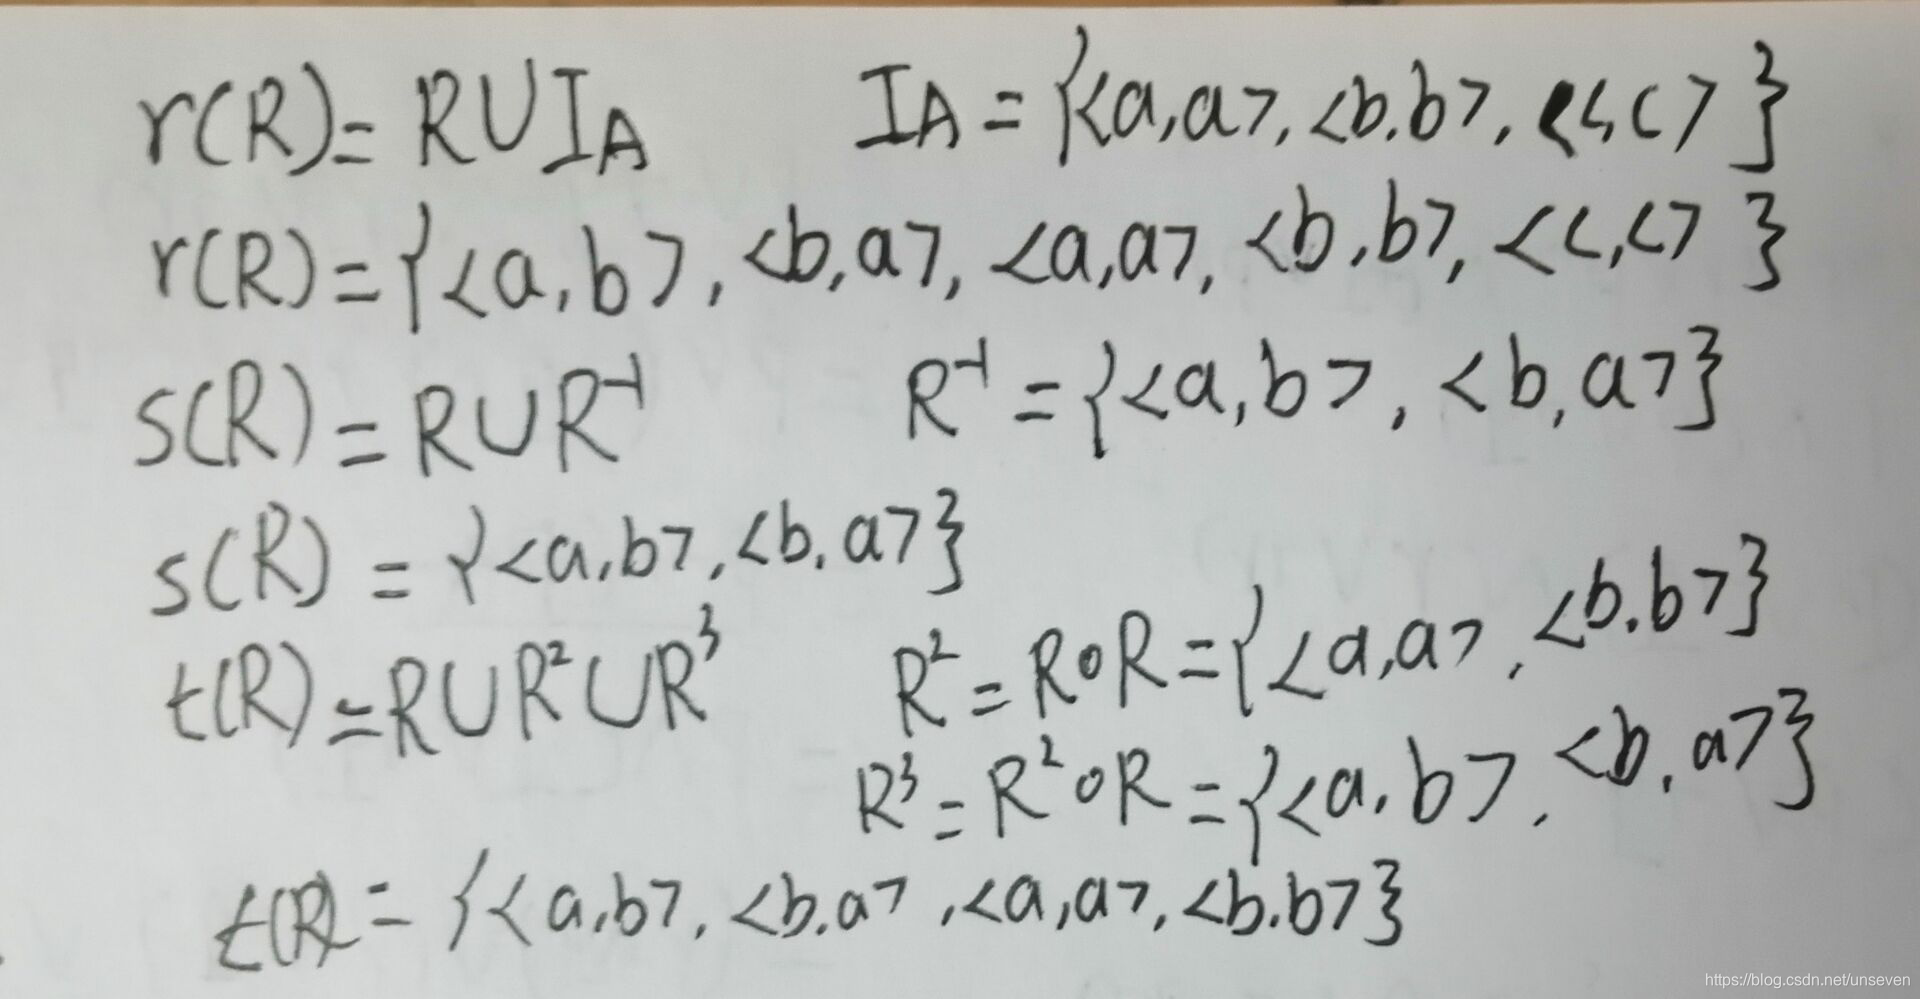 r(R)=R∪I_A    I_A={<a,a>,<b.b>,<c,c>}
r(R)={<a,b>,<b,a>,<a,a>,<b,b>,<c,c>}
s(R)=R∪R⁻¹    R⁻¹={<a,b>,<b,a>}
s(R)={<a,b>,<b,a>}
t(R)=R∪R²∪R³    R²=R∘R={<a,a>,<b.b>}
R³=R²∘R={<a,b>,<b,a>}
t(R)={<a,b>,<b.a>,<a,a>,<b.b>}
https://blog.csdn.net/unseven